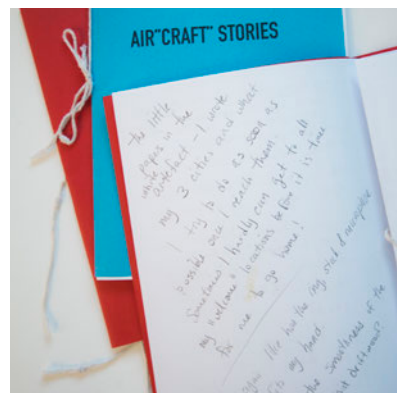 AIR"CRAFT" STORIES
The little
paper in the
white artefact - I wrote
my 3 cities and what
I try to do as soon as
possible once I reach them.
Sometimes I hardly can get to all
my "welcome" locations before it is time
for me to go home!
like how the ring
my hand
the smallness of the